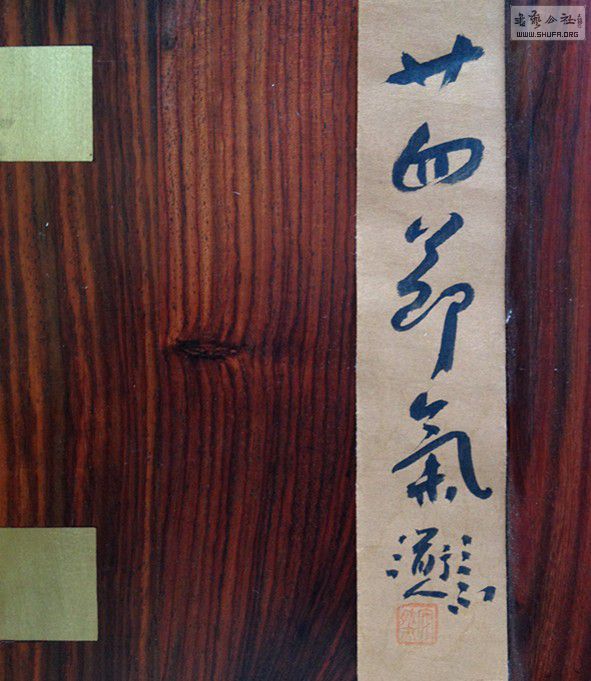 廿四節氣
書藝公社
WWW.SHUFA.ORG